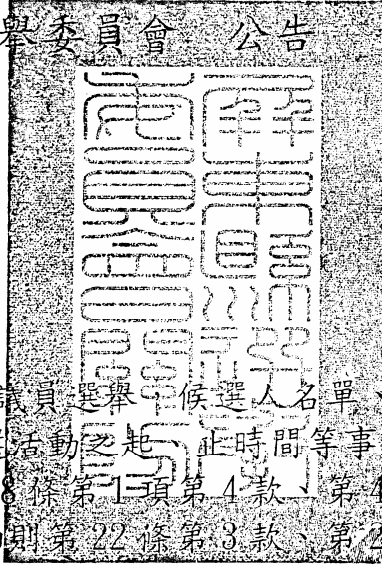 舉委員會　公告
屏東縣選舉
委員會關防
議員選舉，候選人名單、
選活動之起、止時間等事
8條第1項第4款、第4
則第22條第3款、第2